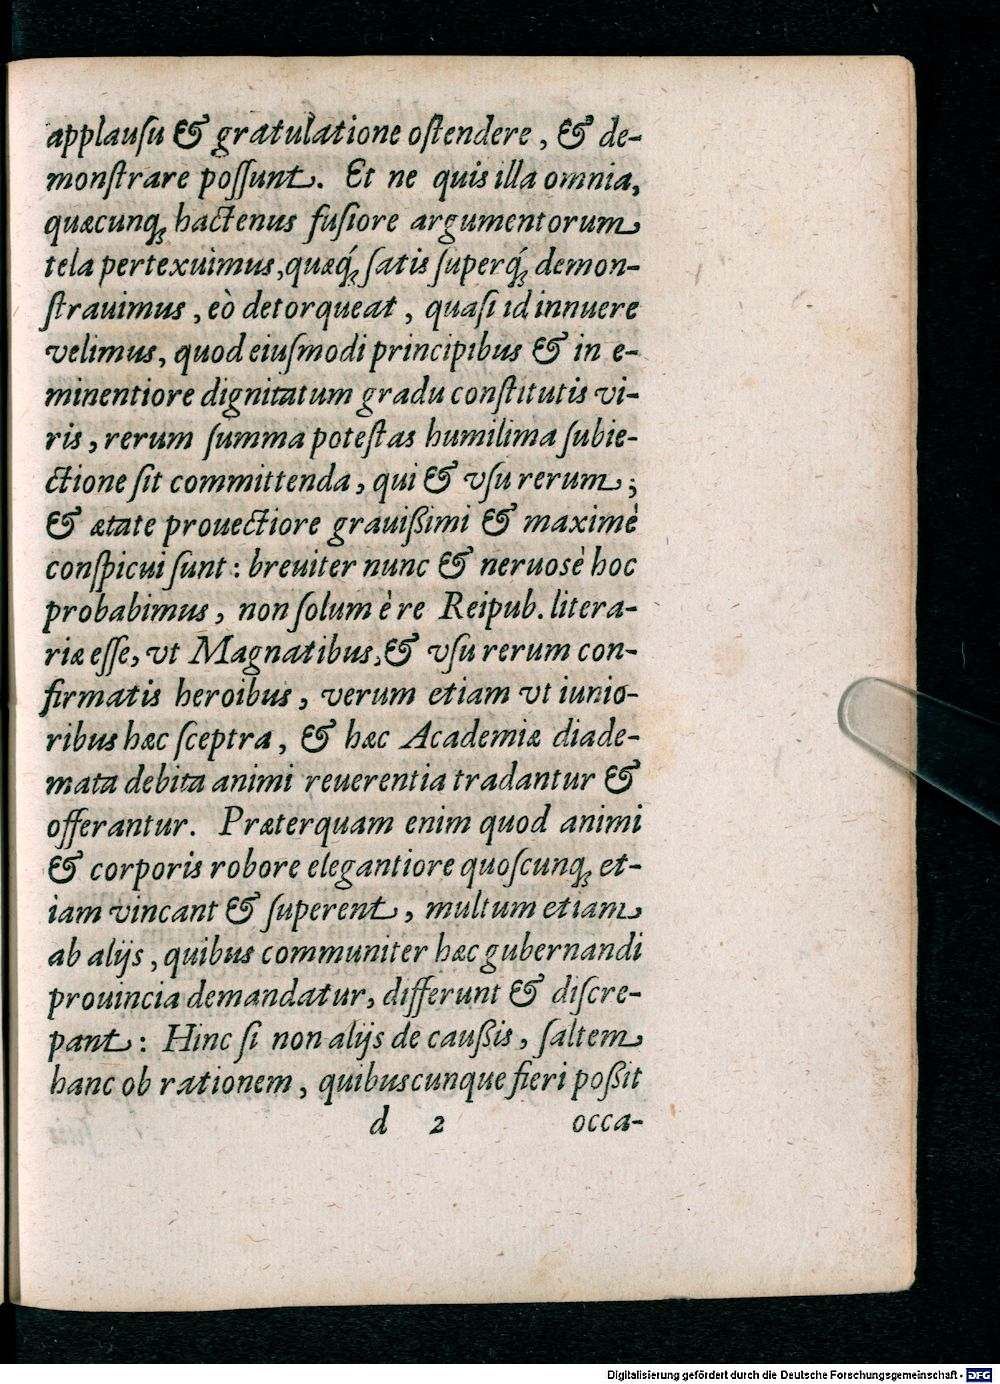 applauſu & gratulatione oſtendere, & de-
monſtrare poſſunt. Et ne quis illa omnia,
quæcunq; hactenus fuſiore argumentorum
tela pertexuimus, quæq́; ſatis ſuperq́; demon-
ſtrauimus, eò detorqueat, quaſi id innuere
velimus, quod eiuſmodi principibus & in e-
minentiore dignitatum gradu conſtitutis vi-
ris, rerum ſumma poteſtas humilima ſubie-
ctione ſit committenda, qui & vſu rerum;
& ætate prouectiore grauißimi & maximè
conſpicui ſunt: breuiter nunc & neruosè hoc
probabimus, non ſolum è re Reipub. litera-
riæ eſſe, vt Magnatibus, & vſu rerum con-
firmatis heroibus, verum etiam vt iunio-
ribus hæc ſceptra, & hæc Academiæ diade-
mata debita animi reuerentia tradantur &
offerantur. Præterquam enim quod animi
& corporis robore elegantiore quoſcunq; et-
iam vincant & ſuperent, multum etiam
ab alijs, quibus communiter hæc gubernandi
prouincia demandatur, differunt & diſcre-
pant: Hinc ſi non alijs de caußis, ſaltem
hanc ob rationem, quibuscunque fieri poßit
d 2 occa-
Digitalisierung gefördert durch die Deutsche Forschungsgemeinschaft - DFG